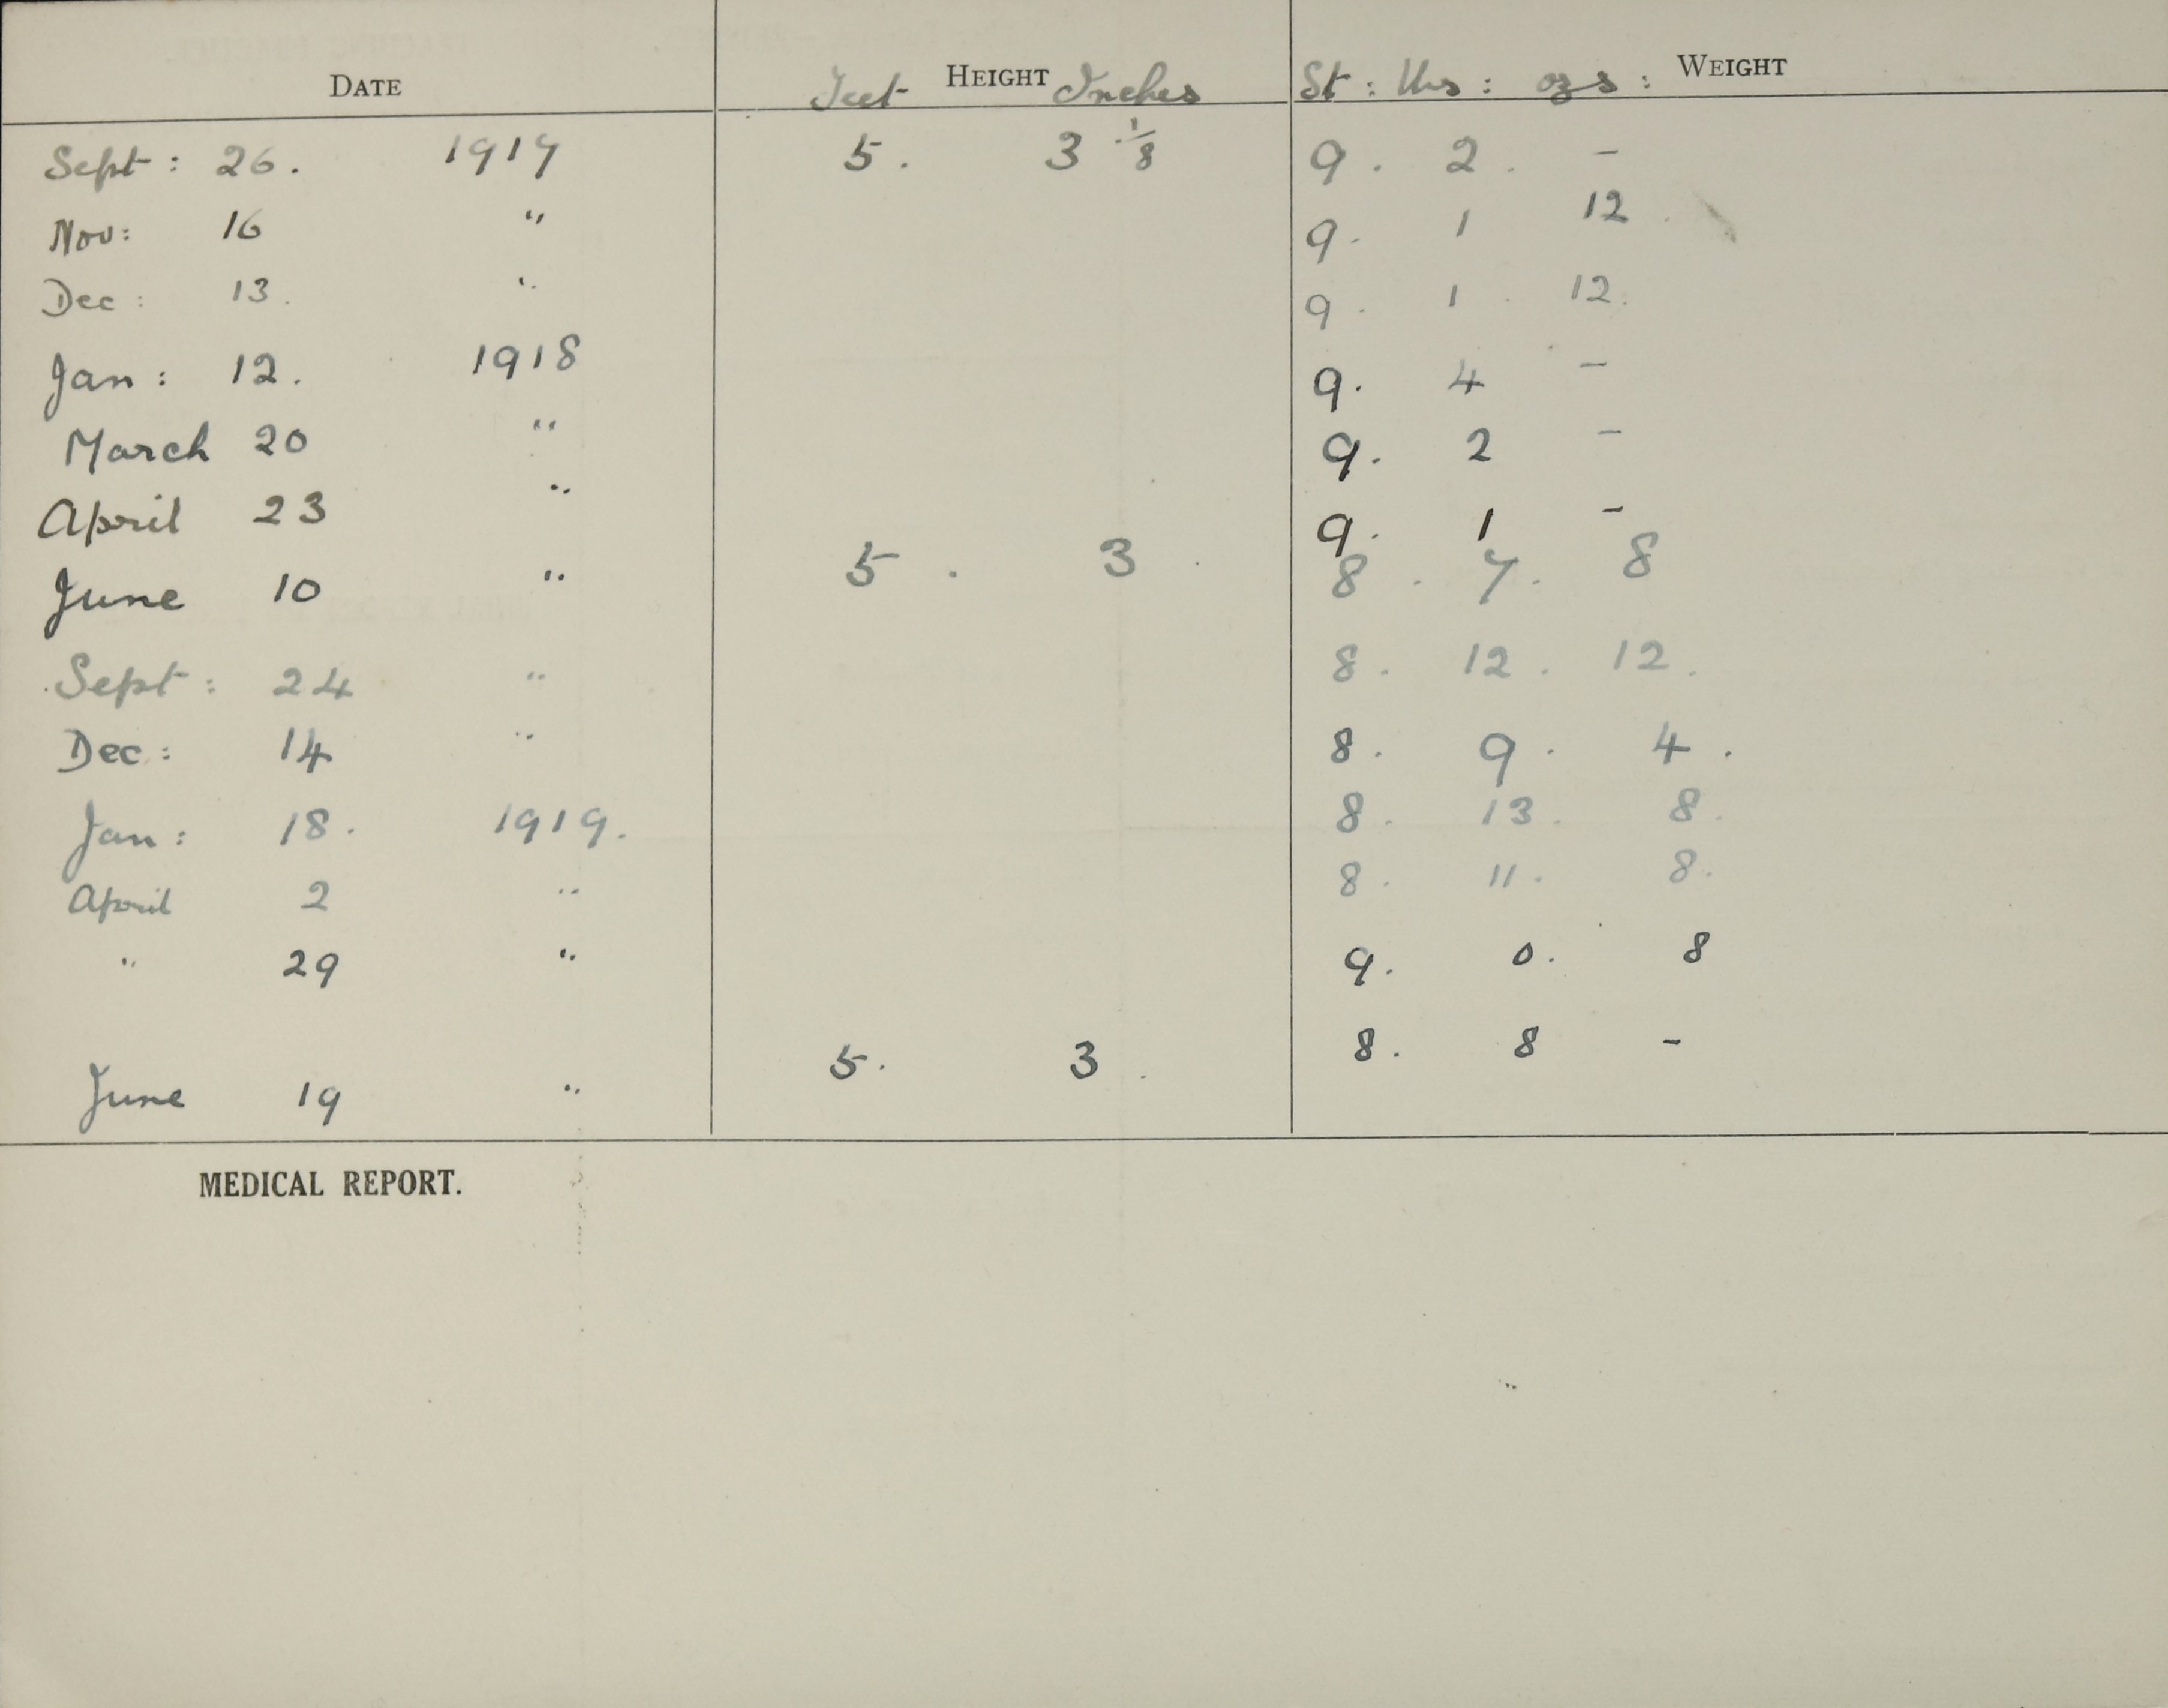 DATE Feet HEIGHT Inches St : lbs : ozs : WEIGHT
Sept : 26. 1917 5. 3 1/8 9. 2. -
Nov: 16 " 9. 1 12.
Dec : 13. " 9. 1. 12.
Jan : 12. 1918 9. 4 -
March 20 " 9. 2 -
April 23 " 9. 1 -
June 10 " 5. 3. 8. 7. 8
Sept : 24 " 8. 12. 12.
Dec : 14 " 8. 9. 4.
Jan : 18. 1919. 8. 13. 8.
April 2 " 8. 11. 8.
" 29 " 9. 0. 8
June 19 " 5. 3. 8. 8 -
MEDICAL REPORT.